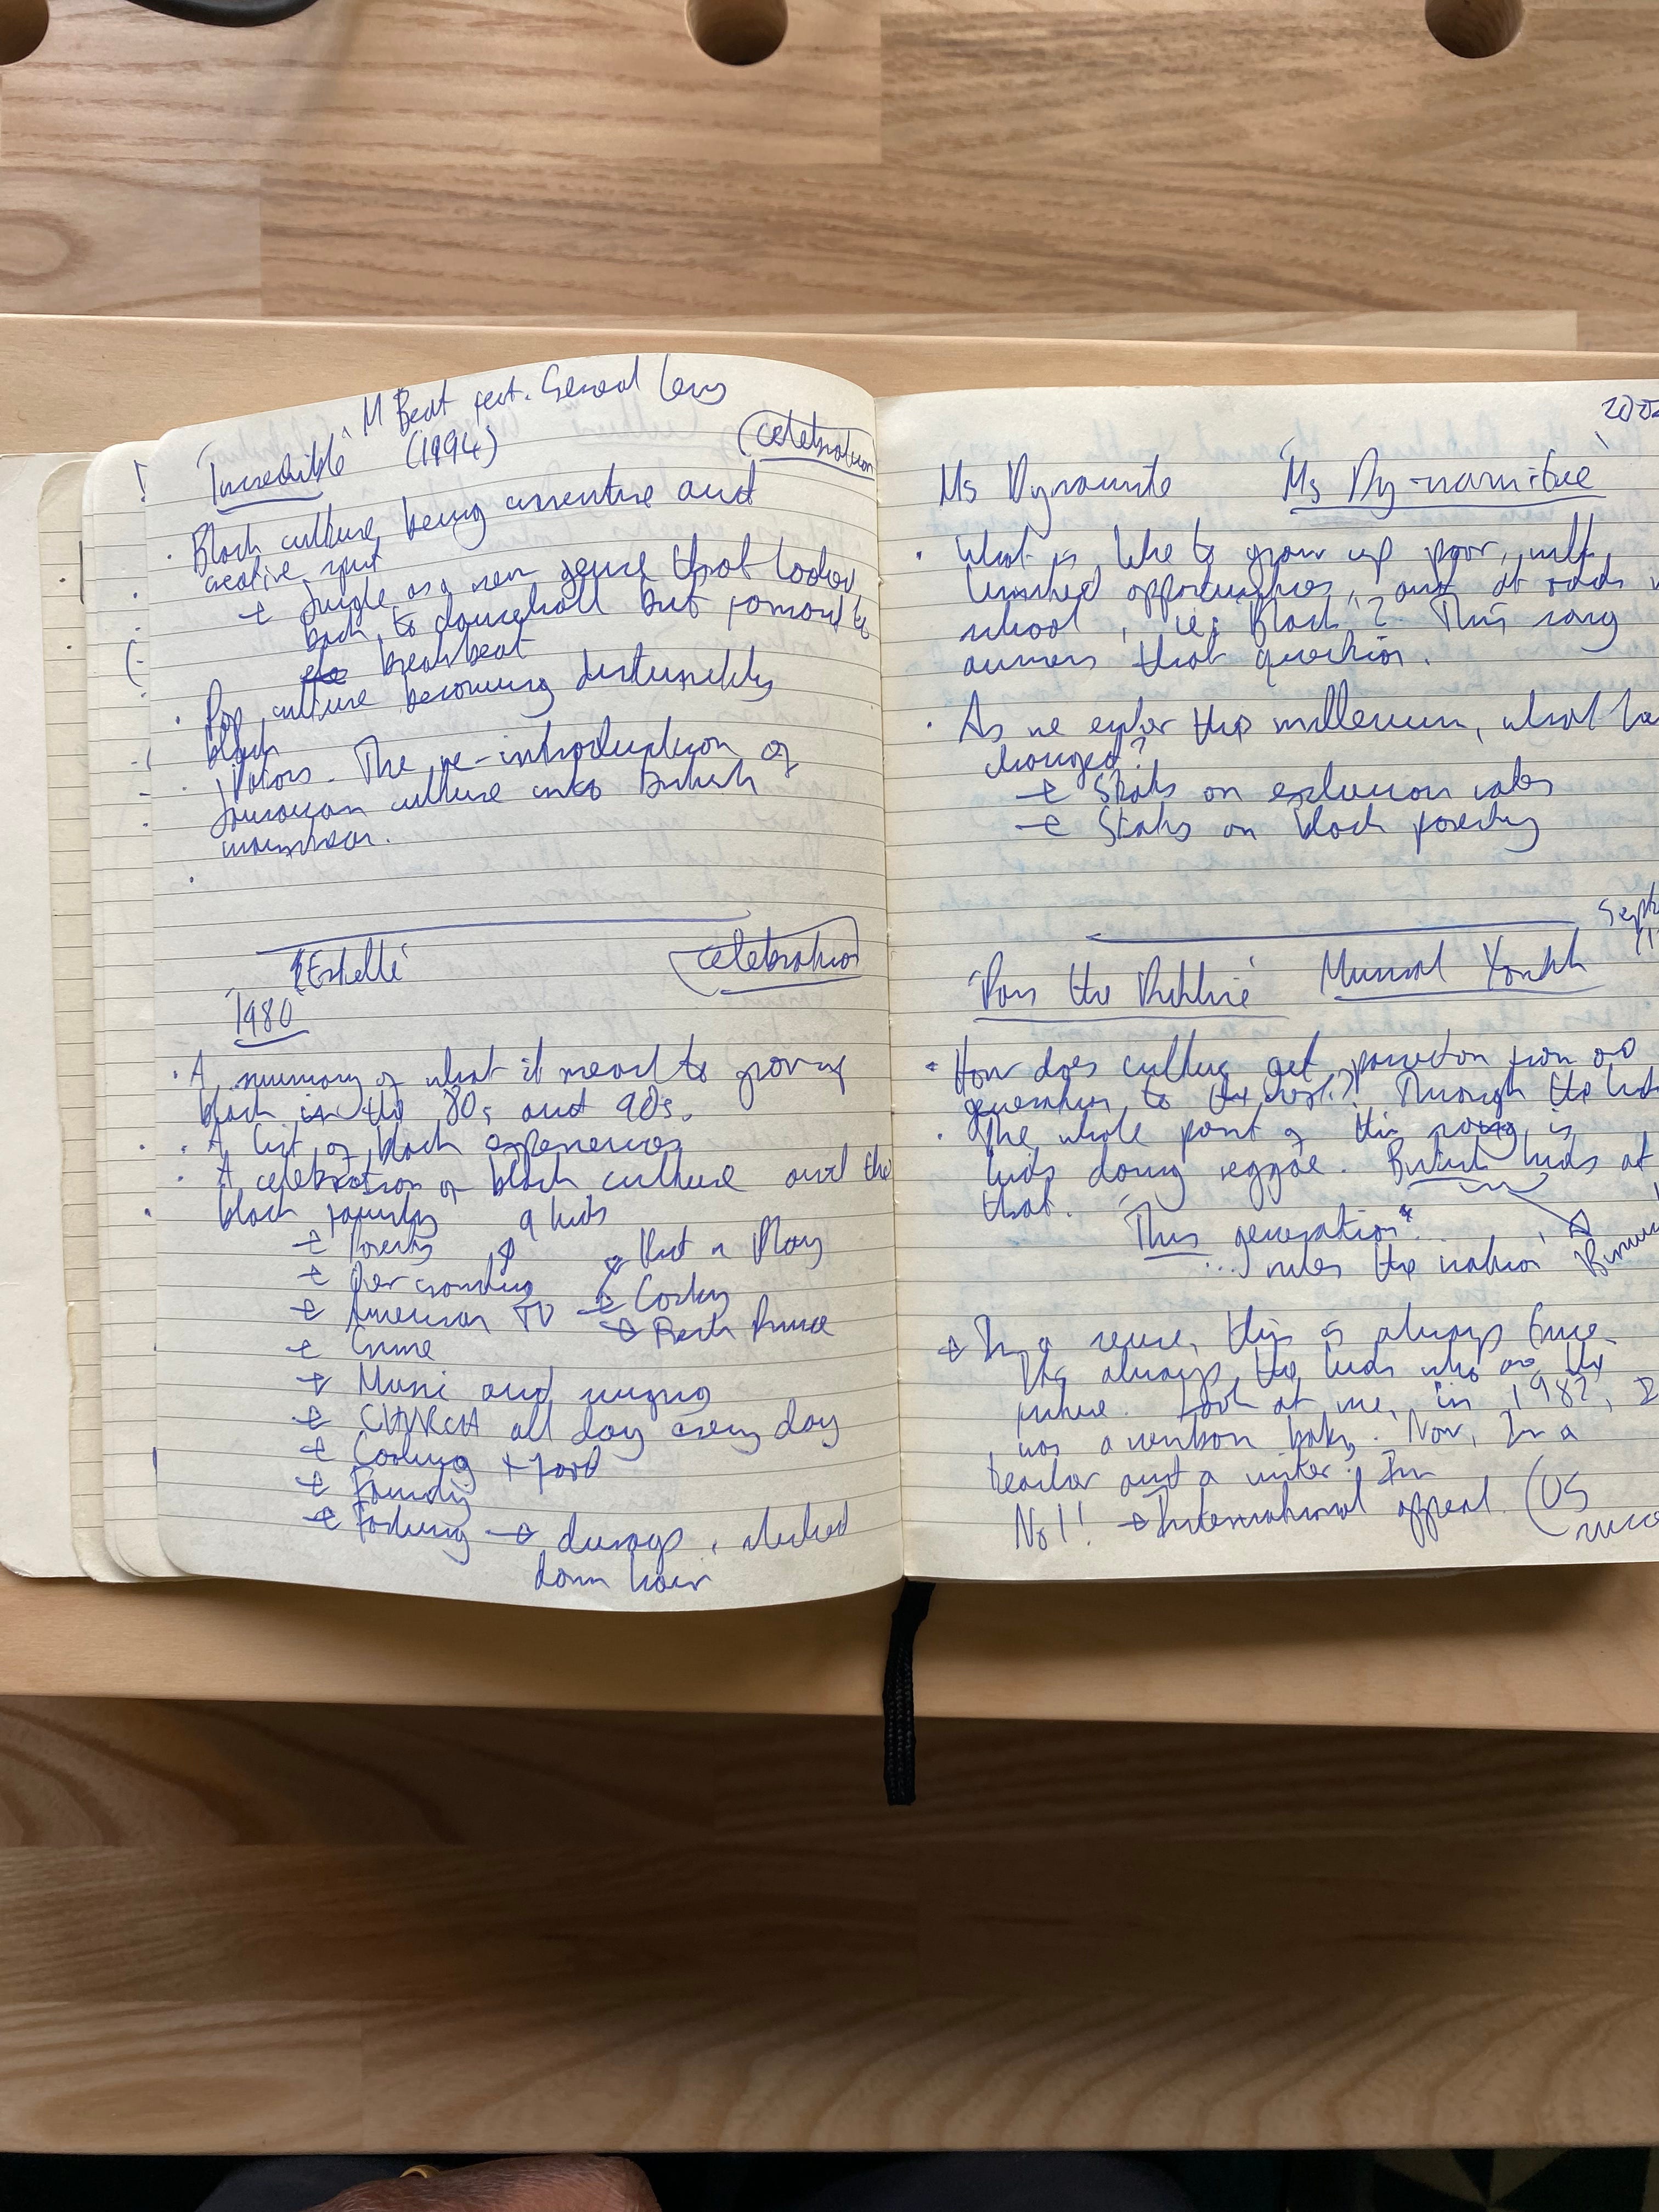 M Beat feat. General Levy
'Incredible' (1994)
celebration
• Black culture being inventive and
creative spirit
→ Jungle as a new genre that looked
back to dancehall but forward to
breakbeat
• Pop culture becoming distinctly
black
• Patois. The re-introduction of
Jamaican culture into British
mainstream.
'Estelle'
celebration
'1980'
• A summary of what it meant to grow up
black in the 80s and 90s.
• A list of black experiences
• A celebration of black culture and the
black family 9 kids
→ Poverty
→ Overcrowding
→ American TV → Kid n Play
→ Cosby
→ Fresh Prince
→ Crime
→ Music and
→ CHURCH all day every day
→ Cooking + food
→ Family
→ Fashion → slicked
down hair
2002
Ms Dynamite 'Ms Dy-na-mi-tee'
• What is like to grow up poor, with
limited opportunities, and at odds
school, ie: 'Black'? This song
answers that question.
• As we enter the millennium, what
changed?
→ Stats on exclusion rates
→ Stats on black poverty
Sept
'Pass the Dutchie' Musical Youth
• How does culture get passed on from one
generation to the next? Through the kids
• The whole point of this song is
kids doing reggae. British kids at
that.
'This generation
... rules the nation'
→ In a sense, this is always true.
It's always the kids who are the
future. Look at me, in 1982, I
was a newborn baby. Now, I'm a
teacher and a writer. I'm
No1! → International appeal. (US